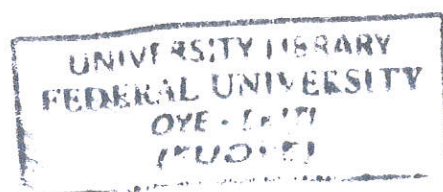 UNIVERSITY LIBRARY
FEDERAL UNIVERSITY
OYE - EKITI